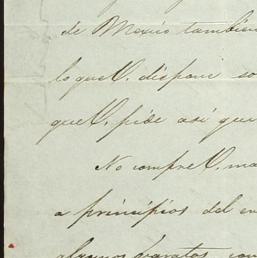 de Mexico tambien
lo que V. dispone so
que V. pide asi que
No compre V. ma
a principios del en
algunos baratos con